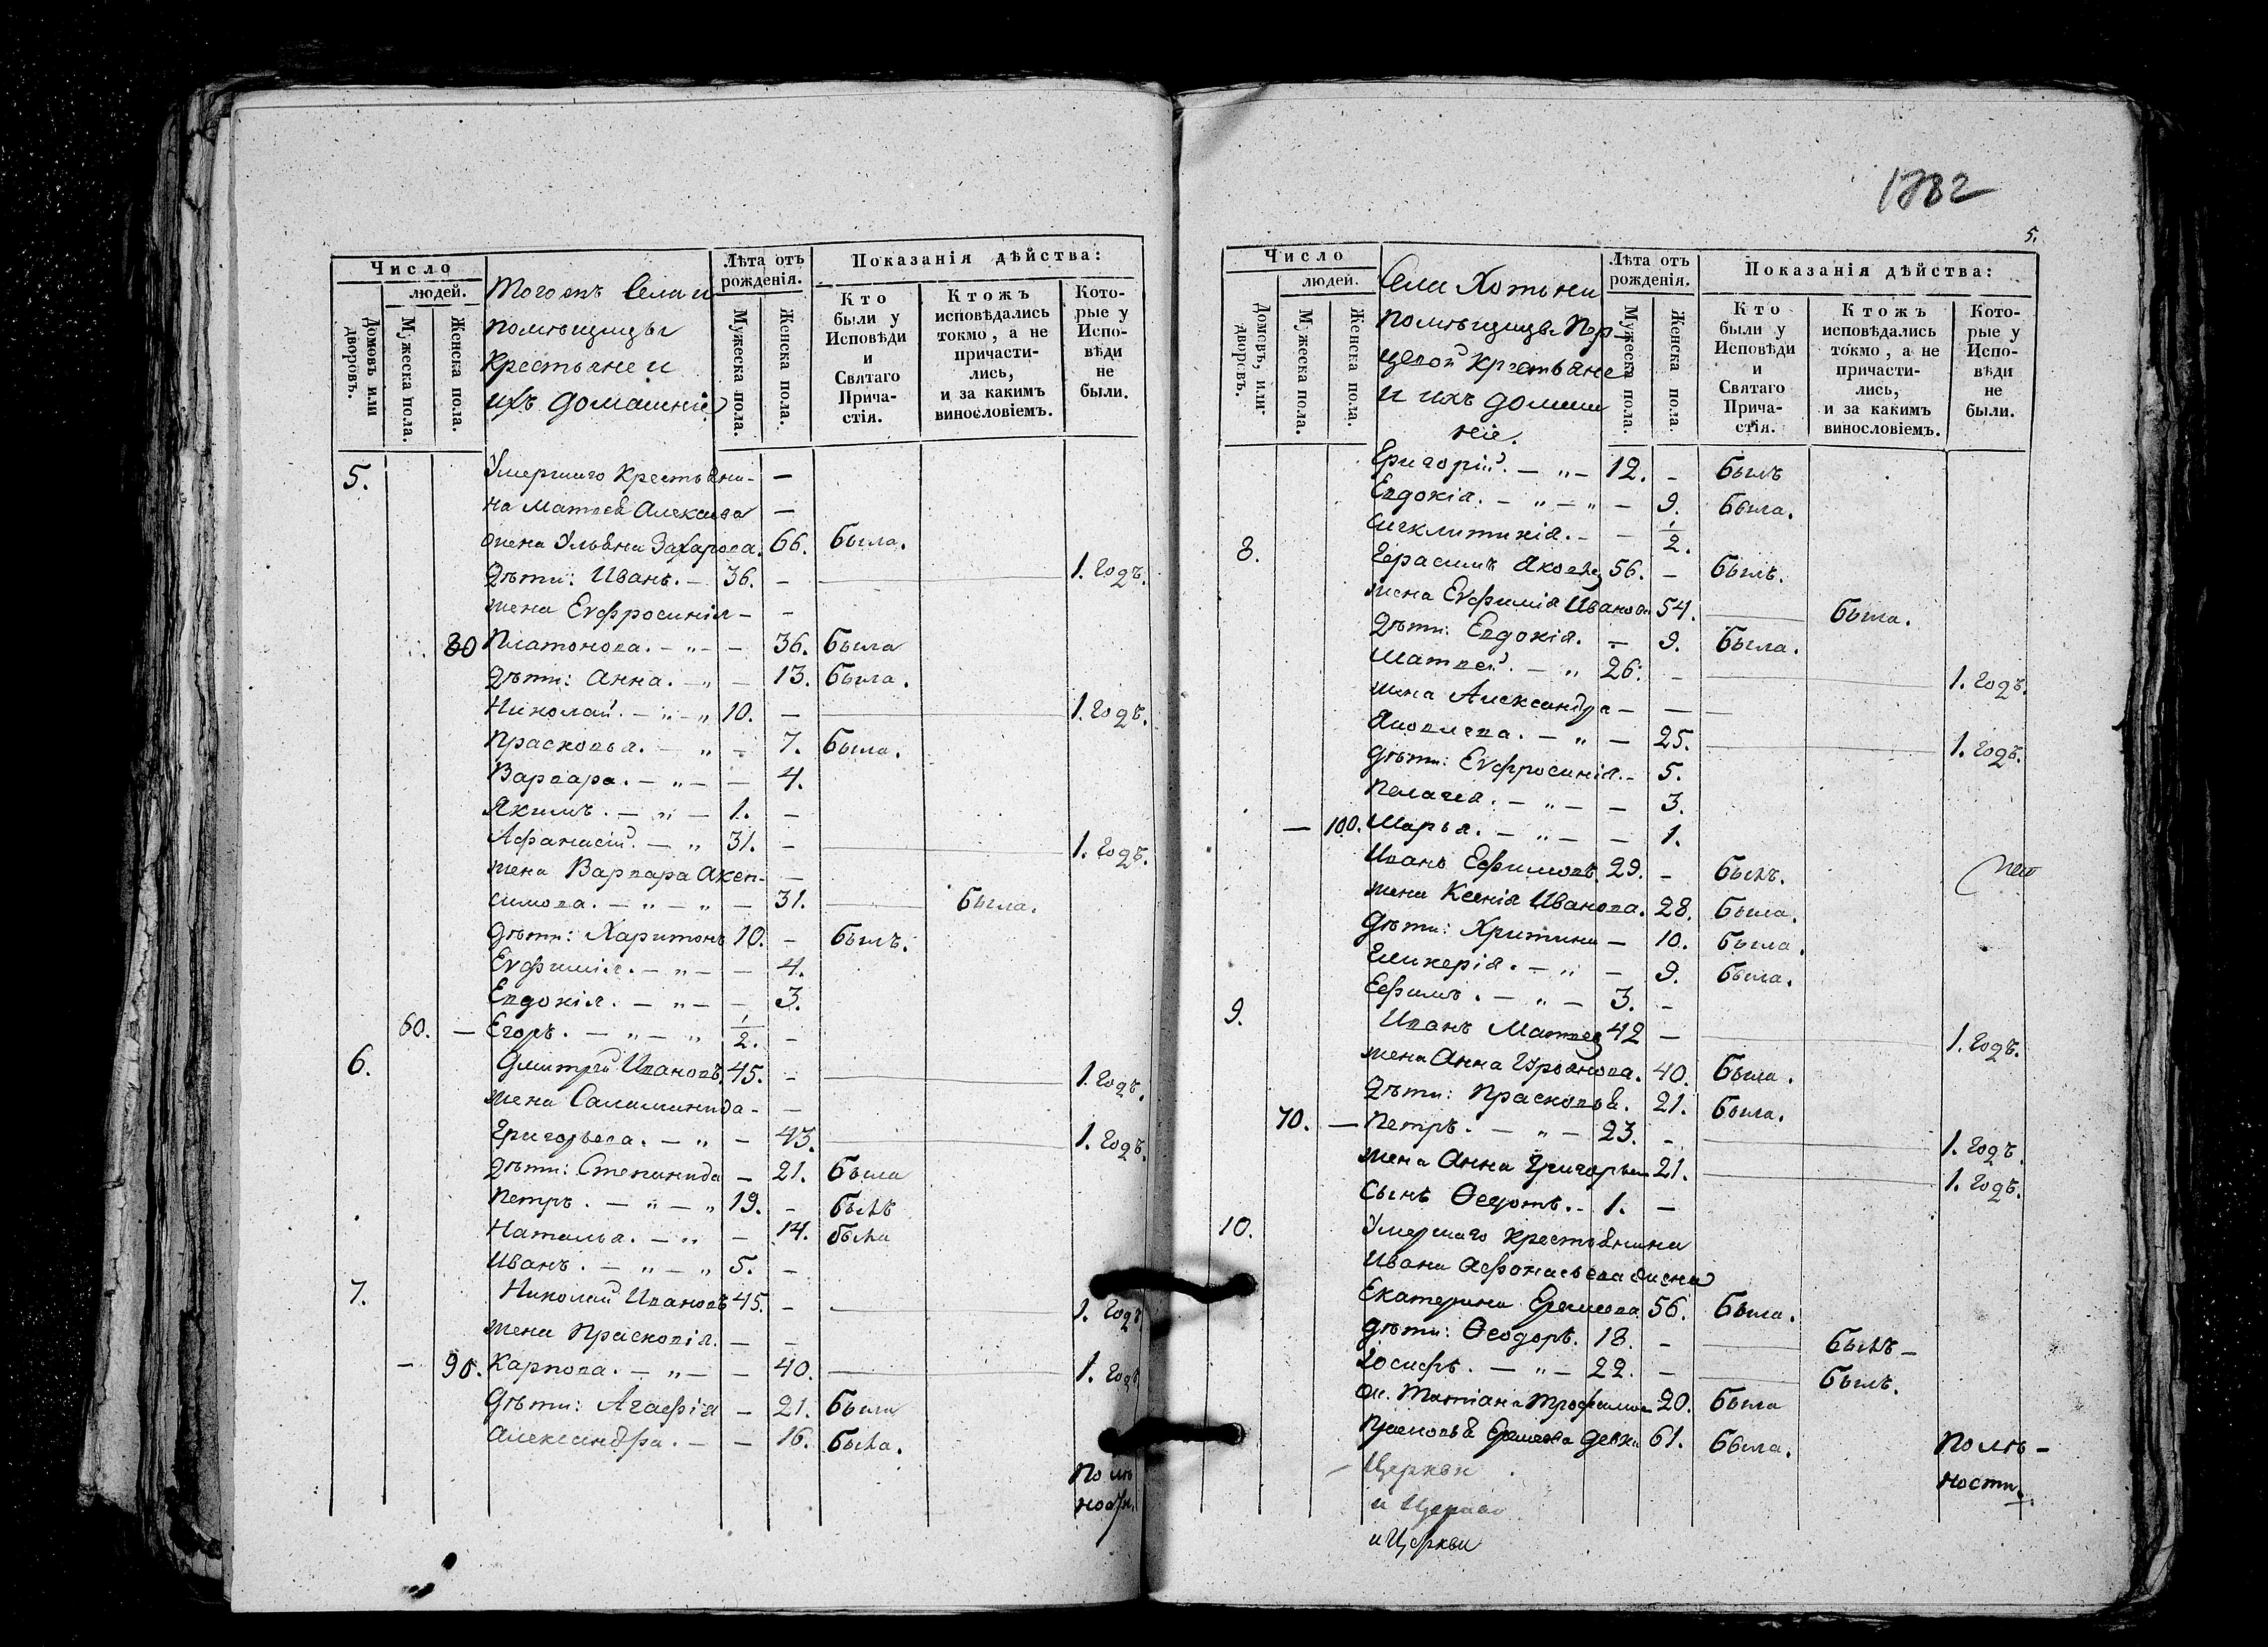 Число
людей.
Домовъ или дворовъ.
Мужеска пола.
Женска пола.
Тогожъ Села и
помѣщицы
крестьяне и
ихъ домашніе
Лѣта отъ рожденія.
Мужеска пола.
Женска пола.
Показанія дѣйства:
Кто были у Исповѣди и Святаго Прича-стія.
Ктожъ исповѣдались токмо, а не причасти-лись, и за какимъ винословіемъ.
Кото-рые у Испо-вѣди не были.
5. Умершаго крестьяни- —
на Матвея Алексеева —
жена Ульяна Захарова. 66. была.
дѣти: Иванъ. — 36. — 1. годъ.
жена Евфросинія — —
80 Платонова. — „ — — 36. была
дѣти: Анна. — „ — 13. была.
Николай. — „ — „ 10. — 1. годъ.
Прасковья. — „ — 7. была.
Варвара. — „ — — 4.
Якимъ. — „ — 1. —
Афанасій. — „ 31. — 1. годъ.
жена Варвара Акен- —
симова. — „ — „ — 31. была.
дѣти: Харитонъ 10. — былъ.
Евфимія. — „ — — 4.
Евдокія. — „ — — 3.
60. — Егоръ. — „ — „ 1/2. —
6. Дмитрій Ивановъ. 45. — 1. годъ.
жена Саламанида — —
Григорьева. — „ — 43. 1. годъ.
дѣти: Степанида — 21. была
Петръ. — „ — „ 19. — былъ
Наталья. — „ — 14. была
Иванъ. — „ — „ 5. —
7. Николай Ивановъ 45. — 1. годъ
жена Прасковія. — —
— 90. Карпова. — „ — — 40. 1. годъ
дѣти: Агафія — 21. была
Александра. — — 16. была.
по лѣ
ности.
1782
5.
Число
людей.
Домовъ, или дворовъ.
Мужеска пола.
Женска пола.
Села Хотыни
помѣщицы Пор
цевой крестьяне
и ихъ домаш
ніе.
Лѣта отъ рожденія.
Мужеска пола.
Женска пола.
Показанія дѣйства:
Кто были у Исповѣди и Святаго Прича-стія.
Ктожъ исповѣдались токмо, а не причасти-лись, и за какимъ винословіемъ.
Кото-рые у Испо-вѣди не были.
Григорій. — „ — 12. — былъ
Евдокія. — „ — „ — 9. была.
Сигклитикія. — — 1/2.
8. Герасимъ Яковле 56. — былъ.
жена Евфимія Иванова 54. была.
дѣти: Евдокія. — 9. была.
Матвей. — „ 26. — 1. годъ.
жена Александра — —
Яковлева. — „ — 25. 1. годъ.
дѣти: Евфросинія. — 5.
Пелагея. — „ — — 3.
— 100. Марья. — „ — — 1.
Иванъ Ефимовъ. 29. — былъ.
жена Ксенія Иванова. 28. была.
дѣти: Христина — 10. была.
Гликерія. — „ — 9. была.
Ефимъ. — „ — 3. —
9. Иванъ Матвее 42 — 1. годъ.
жена Анна 40. была.
дѣти: Прасковья. 21. была.
70. — Петръ. — „ — 23. — 1. годъ.
жена Анна Григорьев 21. 1. годъ.
сынъ Ѳедотъ. — 1. —
10. Умершаго крестьянина
Ивана Афонасьева жена
Екатерина Еремеева 56. была.
дѣти: Ѳеодоръ. 18. — былъ —
Іосифъ. — „ — 22. — былъ.
ж. Татіана Трофимов 20. была
Прасковья Еремеева девка 61. была.
по лѣ—
ности.
— Церкви
и Церкви
и Церкви